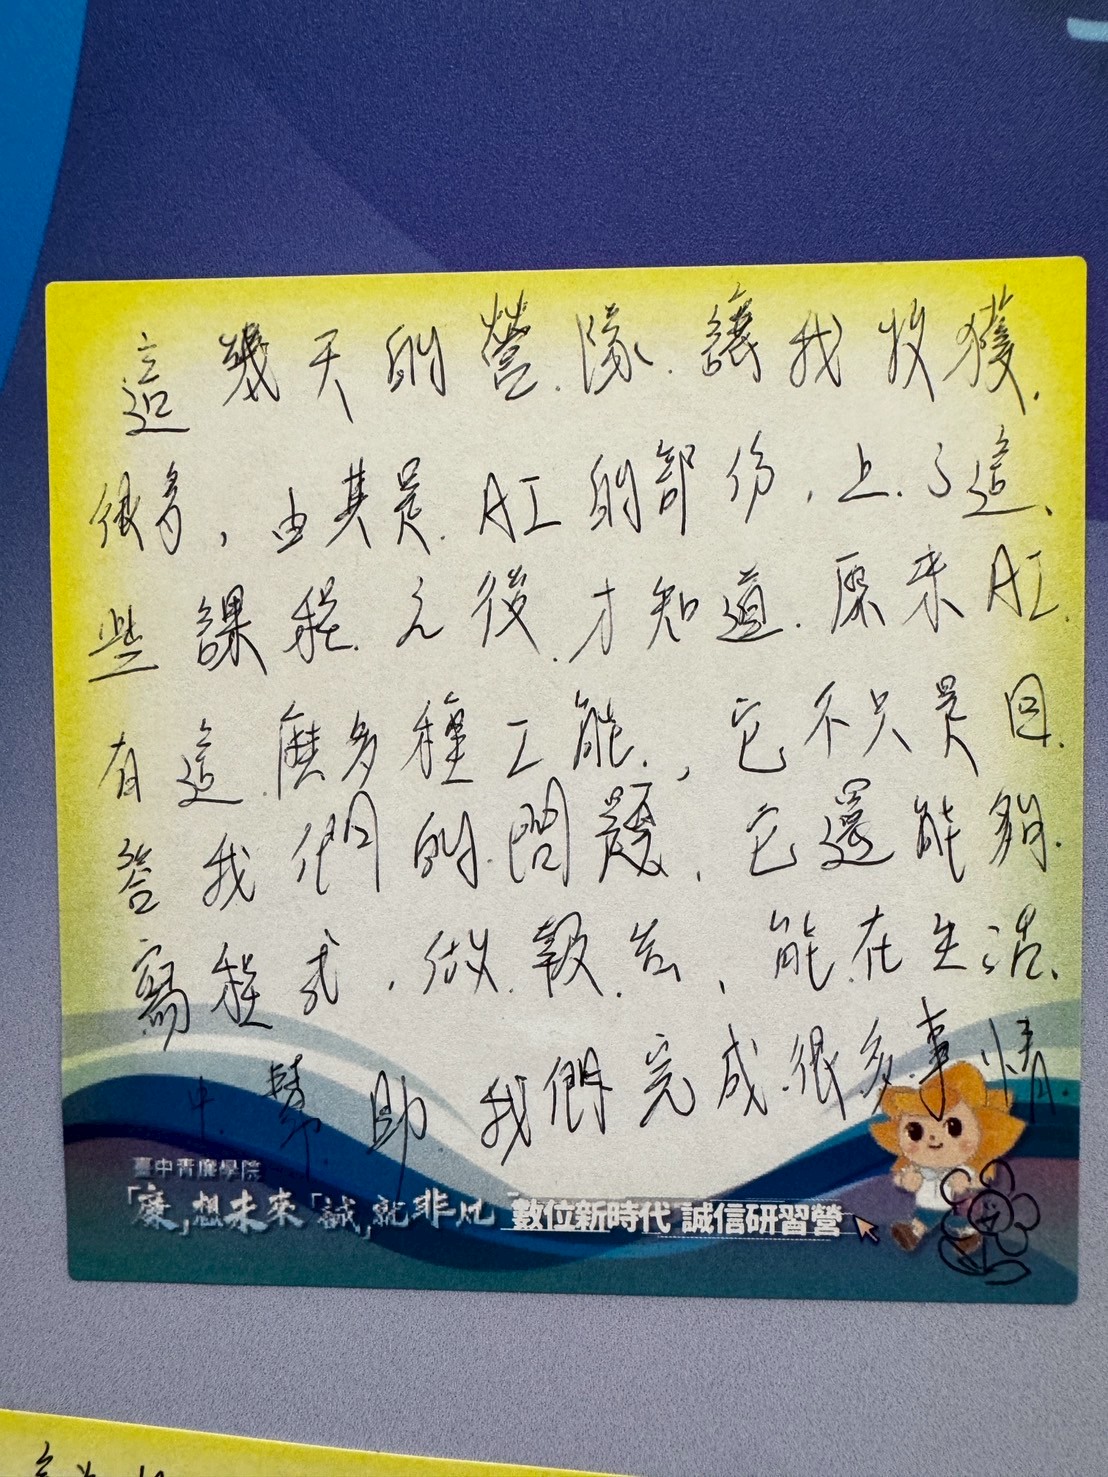 這幾天的營隊讓我收獲
很多，由其是AI的部份，上了這
些課程之後才知道原來AI
有這麼多種工能，它不只是回
答我們的問題，它還能夠
寫程式，做報告，能在生活
中幫助我們完成很多事情
臺中青廉學院
「廉」想未來「誠」就非凡 數位新時代 誠信研習營